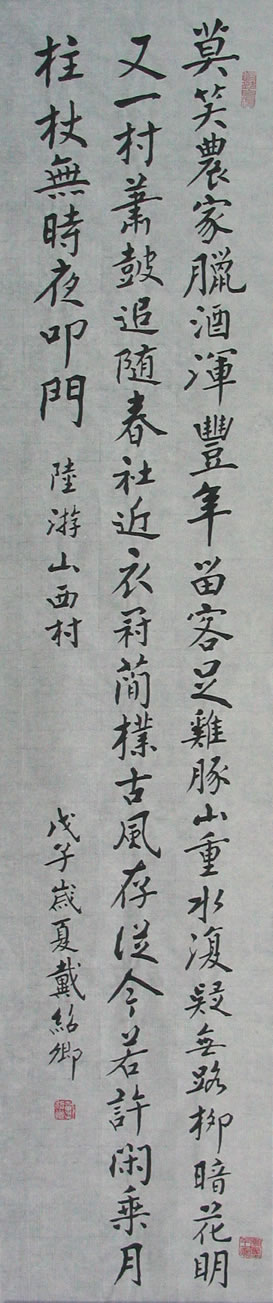 莫笑農家臘酒渾豐年留客足雞豚山重水復疑無路柳暗花明
又一村蕭鼓追隨春社近衣冠簡樸古風存從今若許閑乘月
柱杖無時夜叩門
陸游山西村
戊子歲夏戴紹卿